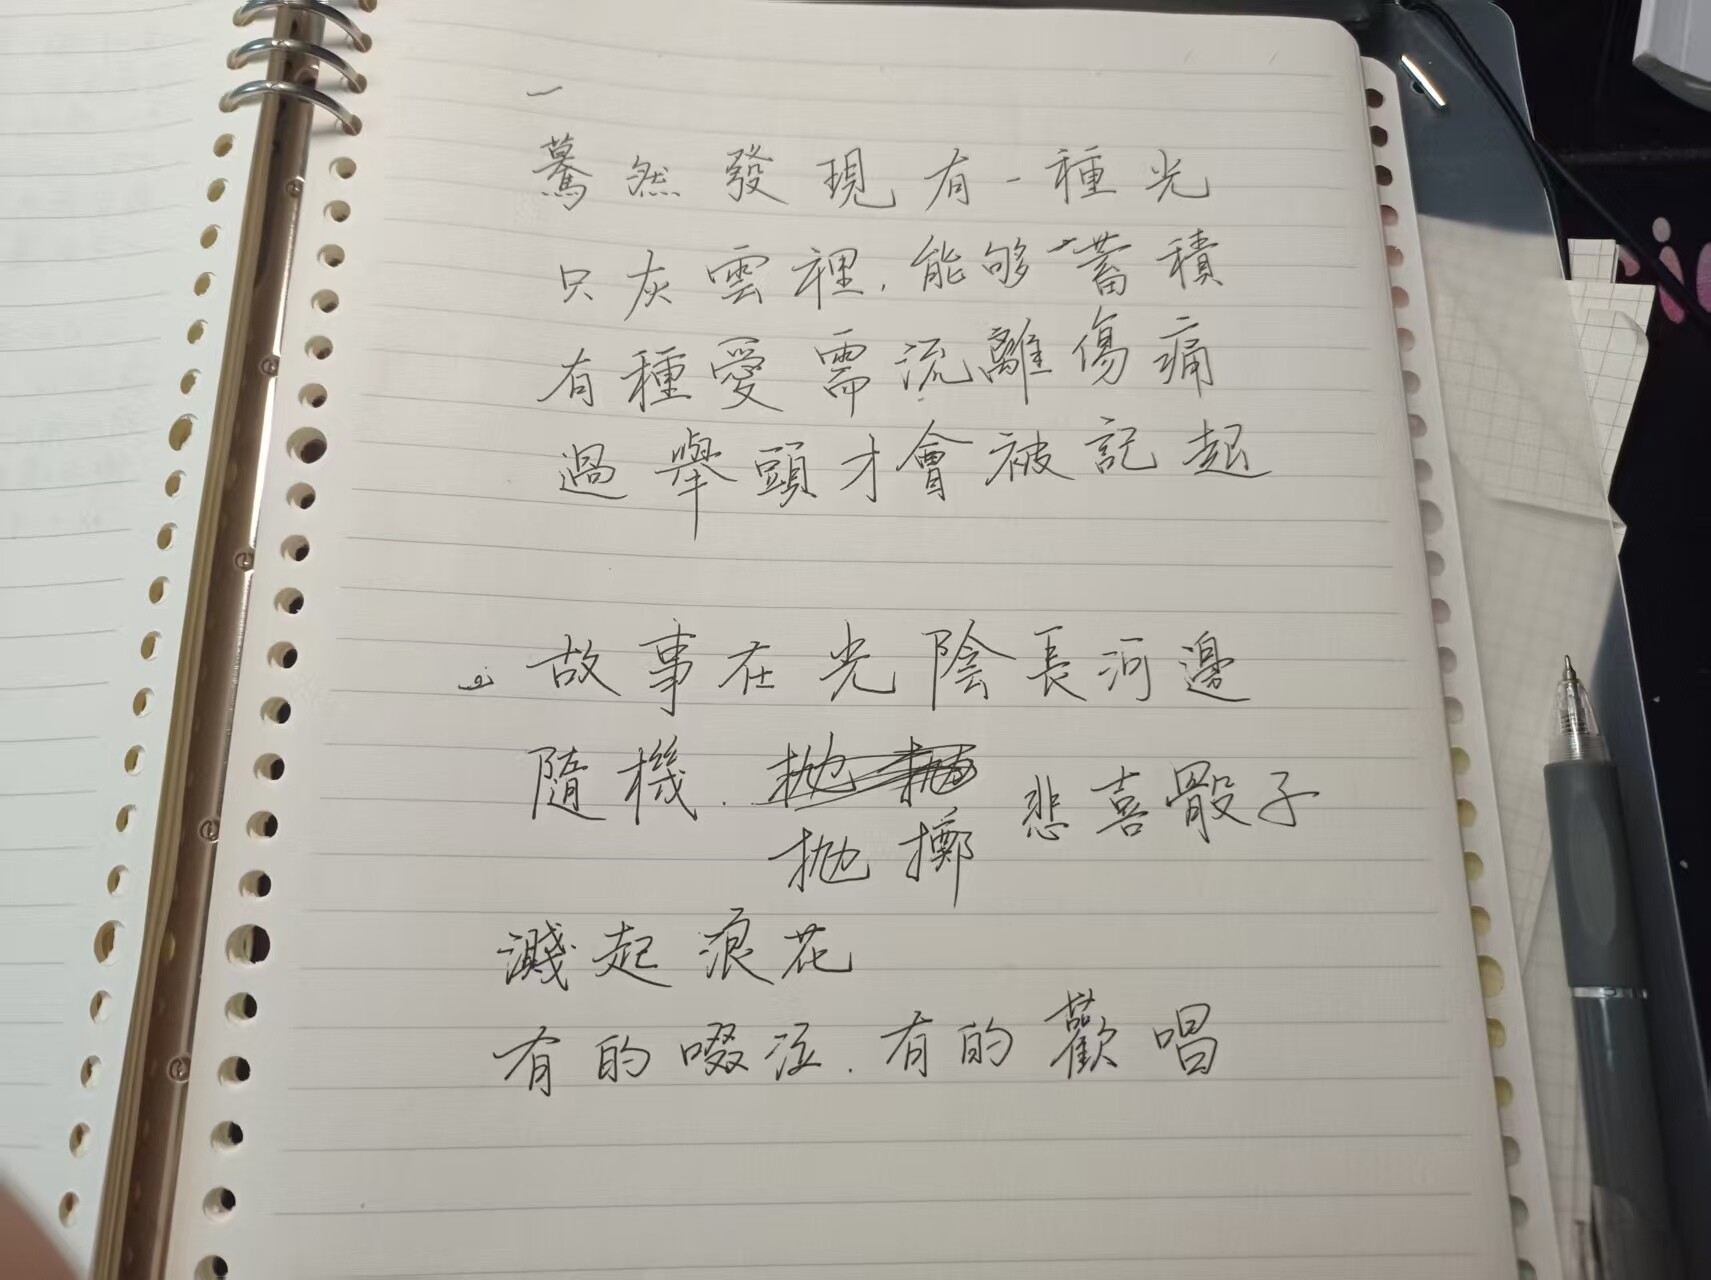 一
驀然發現有一種光
只灰雲裡.能够蓄積
有種愛需流離傷痛
過舉頭才會被記起
故事在光陰長河邊
隨機.拋擲悲喜骰子
濺起浪花
有的啜泣.有的歡唱